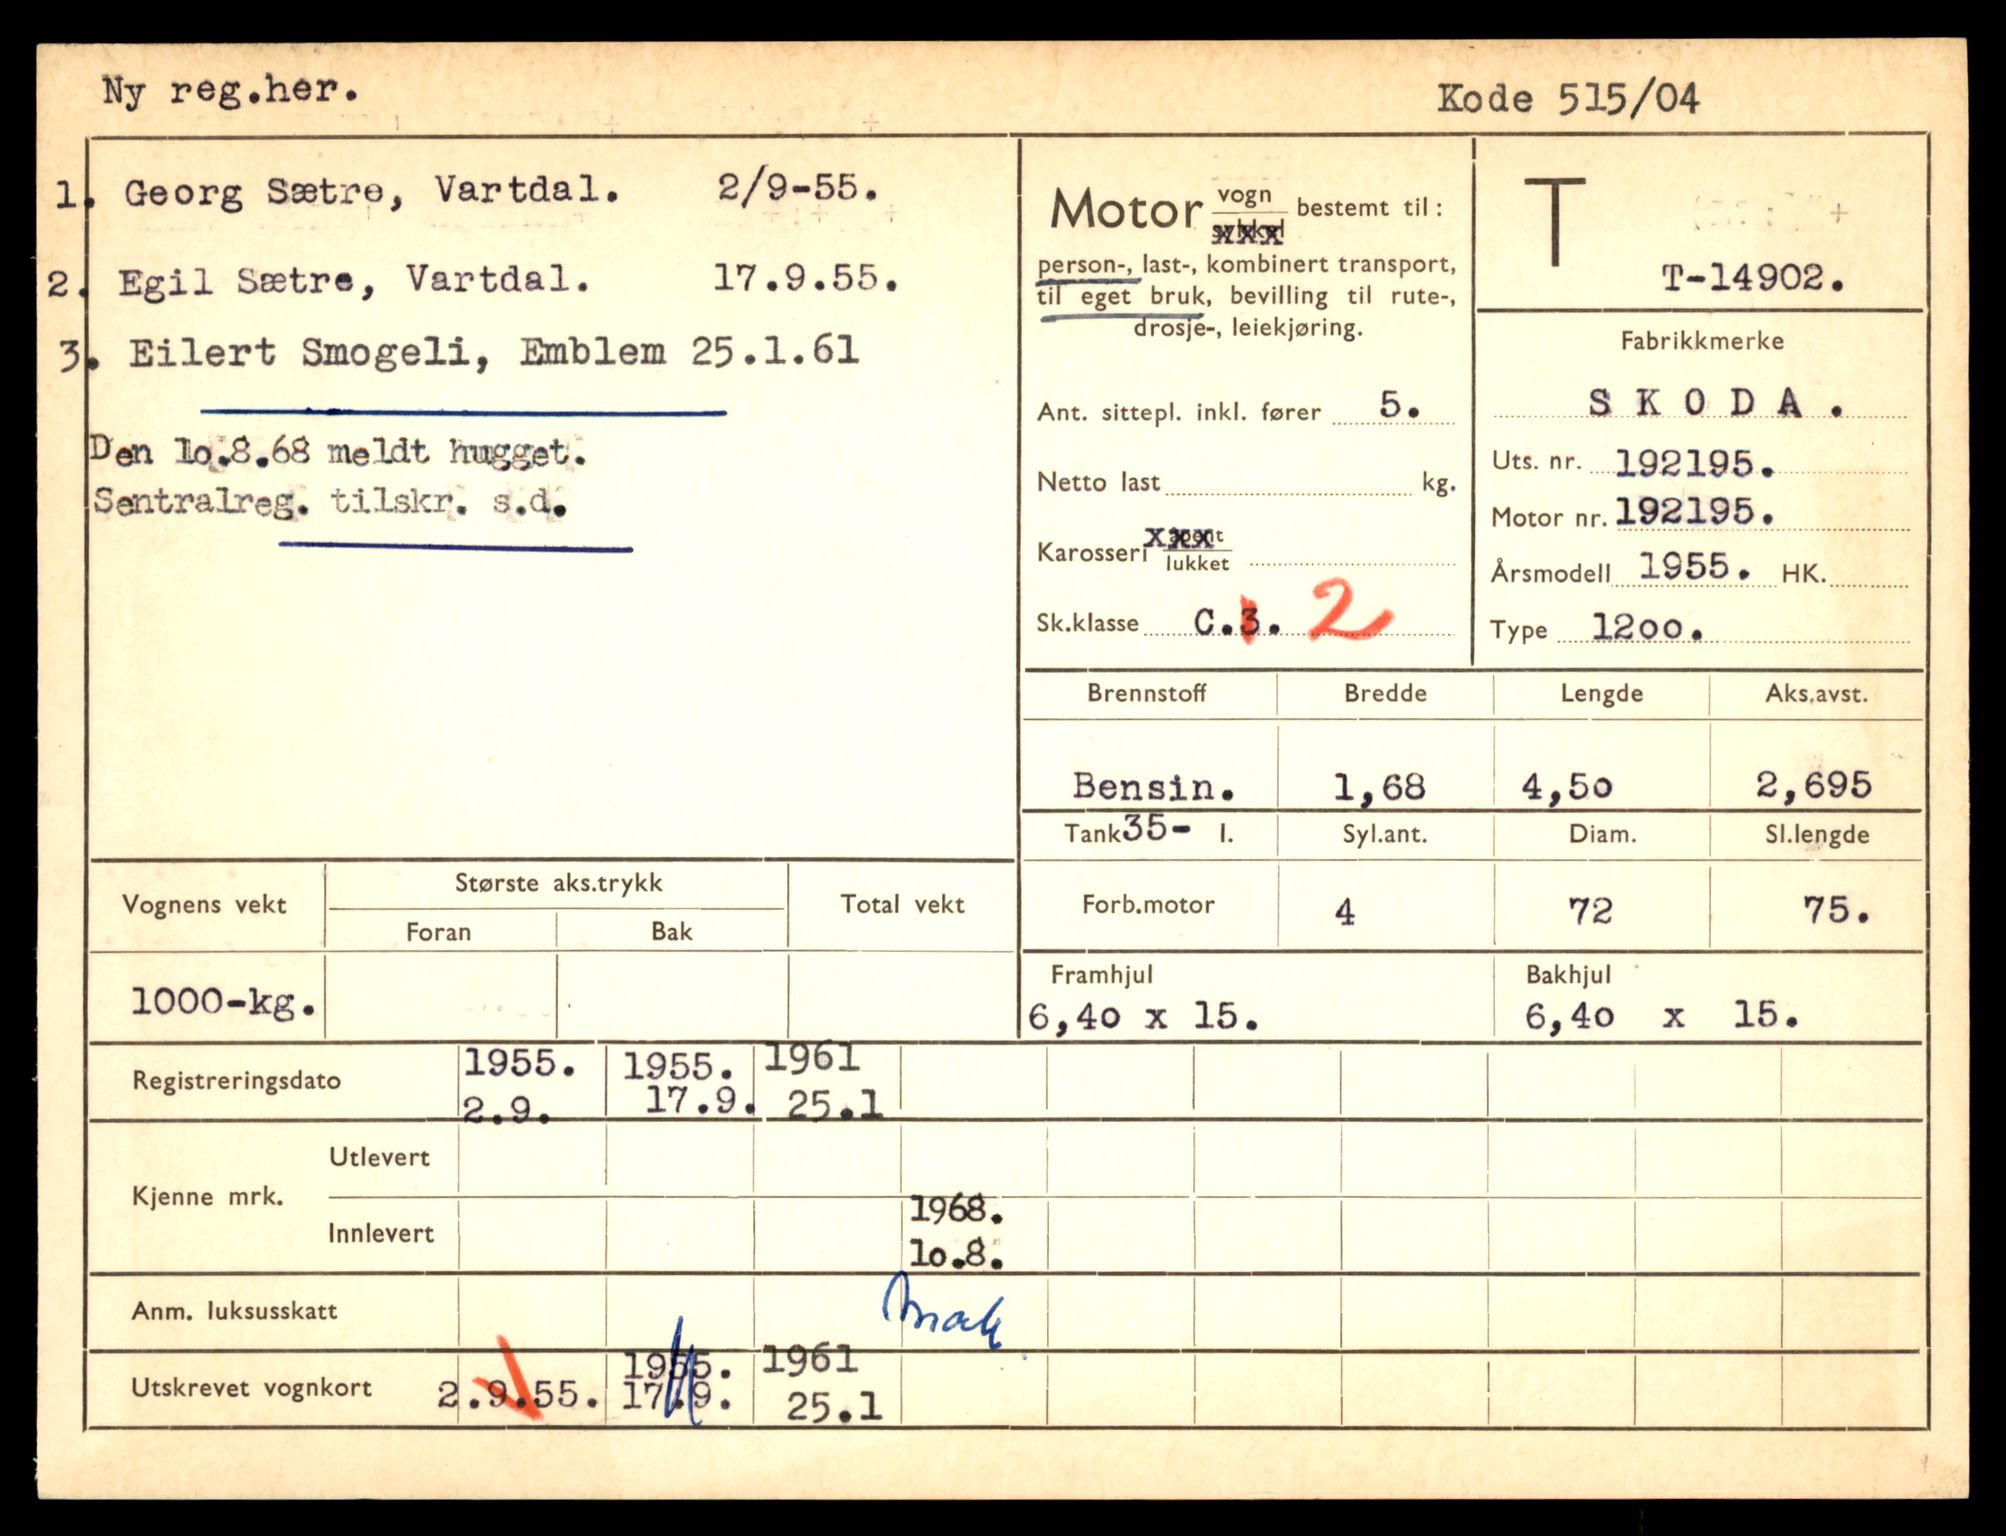 Ny reg.her.
Kode 515/04
1. Georg Sætre, Vartdal. 2/9-55.
2. Egil Sætre, Vartdal. 17.9.55.
3. Eilert Smogeli, Emblem 25.1.61
Den lo.8.68 meldt hugget.
Sentralreg. tilskr. s.d.
Motor vogn bestemt til:
xxx
person-, last-, kombinert transport,
til eget bruk, bevilling til rute-,
drosje-, leiekjøring.
Ant. sittepl. inkl. fører 5.
Netto last kg.
Karosseri xxx
lukket
Sk.klasse C.3. 2
T
T-14902.
Fabrikkmerke
SKODA.
Uts. nr. 192195.
Motor nr. 192195.
Årsmodell 1955. HK.
Type 12oo.
Brennstoff Bredde Lengde Aks.avst.
Bensin. 1,68 4,5o 2,695
Tank 35- l. Syl.ant. Diam. Sl.lengde
Forb.motor 4 72 75.
Framhjul Bakhjul
6,4o x 15. 6,4o x 15.
Vognens vekt Største aks.trykk Total vekt
Foran Bak
1000-kg.
Registreringsdato 1955. 1955. 1961
2.9. 17.9. 25.1
Kjenne mrk.
Utlevert
Innlevert 1968.
lo.8.
Anm. luksusskatt
Utskrevet vognkort 2.9.55. 1955. 1961
17.9. 25.1